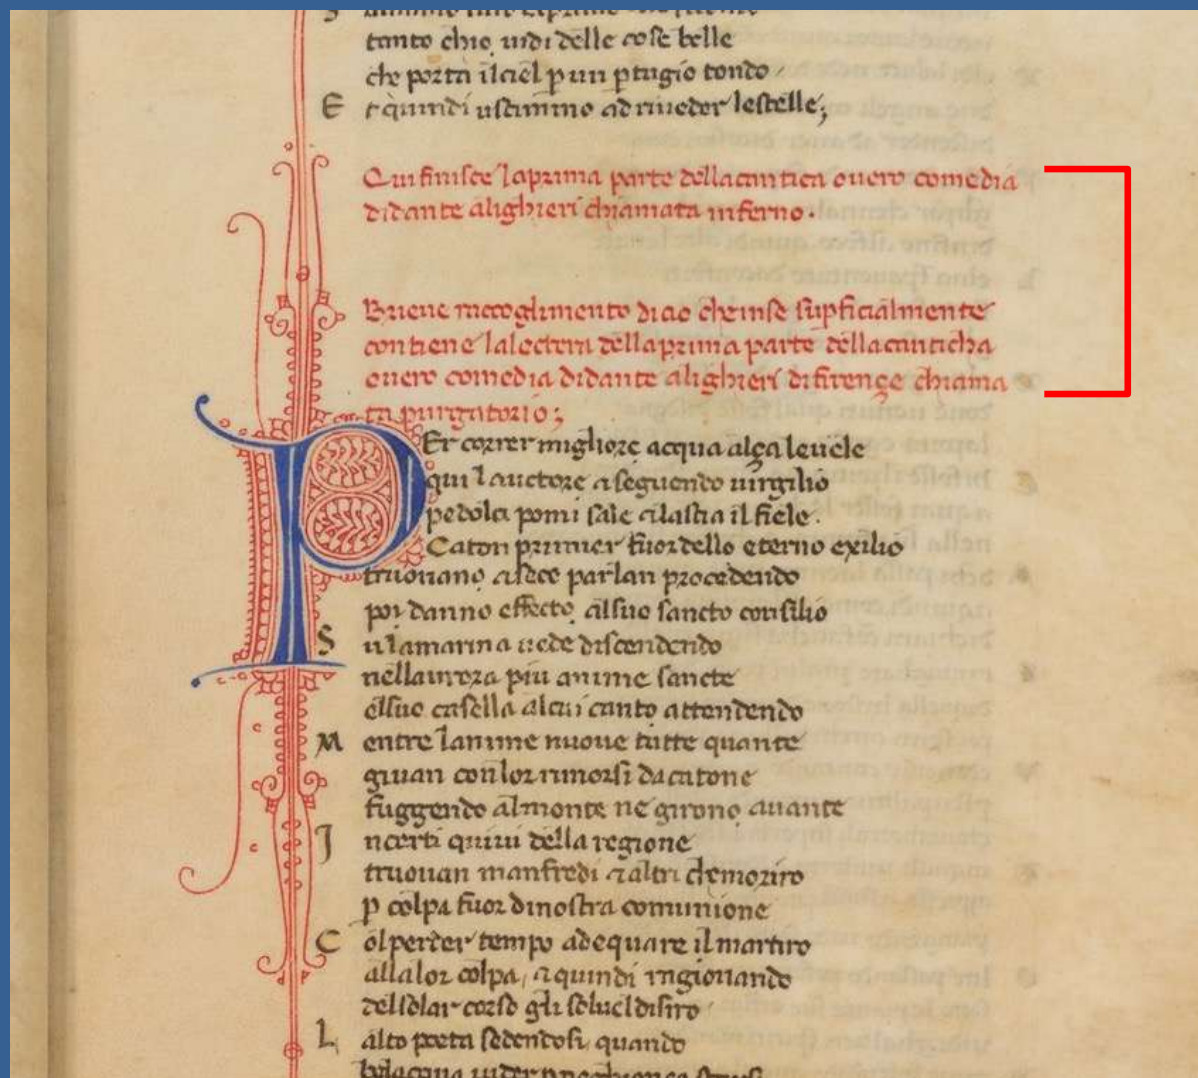 tanto chio uidi delle cose belle
che porta ilciel p un ptugio tondo
E t quindi uscimmo ad riueder lestelle;
Qui finisce laprima parte dellacantica ouero comedia
didante alighieri chiamata inferno.
Brieue raccoglimento dicio cheinse supficialmente
contiene lalectera dellaprima parte dellacanticha
ouero comedia didante alighieri difirençe chiama
ta purgatorio;
PEr correr migliore acqua alça leuele
qui lauctore ⁊ seguendo uirgilio
pe dolci pomi sale ⁊ lascia il fiele.
Caton primier fuor dello eterno exilio
truouano ⁊ seco parlan procedendo
poi danno effecto alsuo sancto consilio
S u lamarina uede discendendo
nellaurora piu anime sancte
elsuo casella alcui canto attendendo
M entre lanime nuoue tutte quante
giuan conlor rimorsi dacatone
fuggendo almonte ne girono auante
I ncerti quiui della regione
truouan manfredi ⁊ altri chemoriro
p colpa fuor dinostra comunione
C ol perder tempo adequare il martiro
allalor colpa, ⁊ quindi ragionando
delsolar corso gli soluel disiro
L alto poeta sedendosi quando